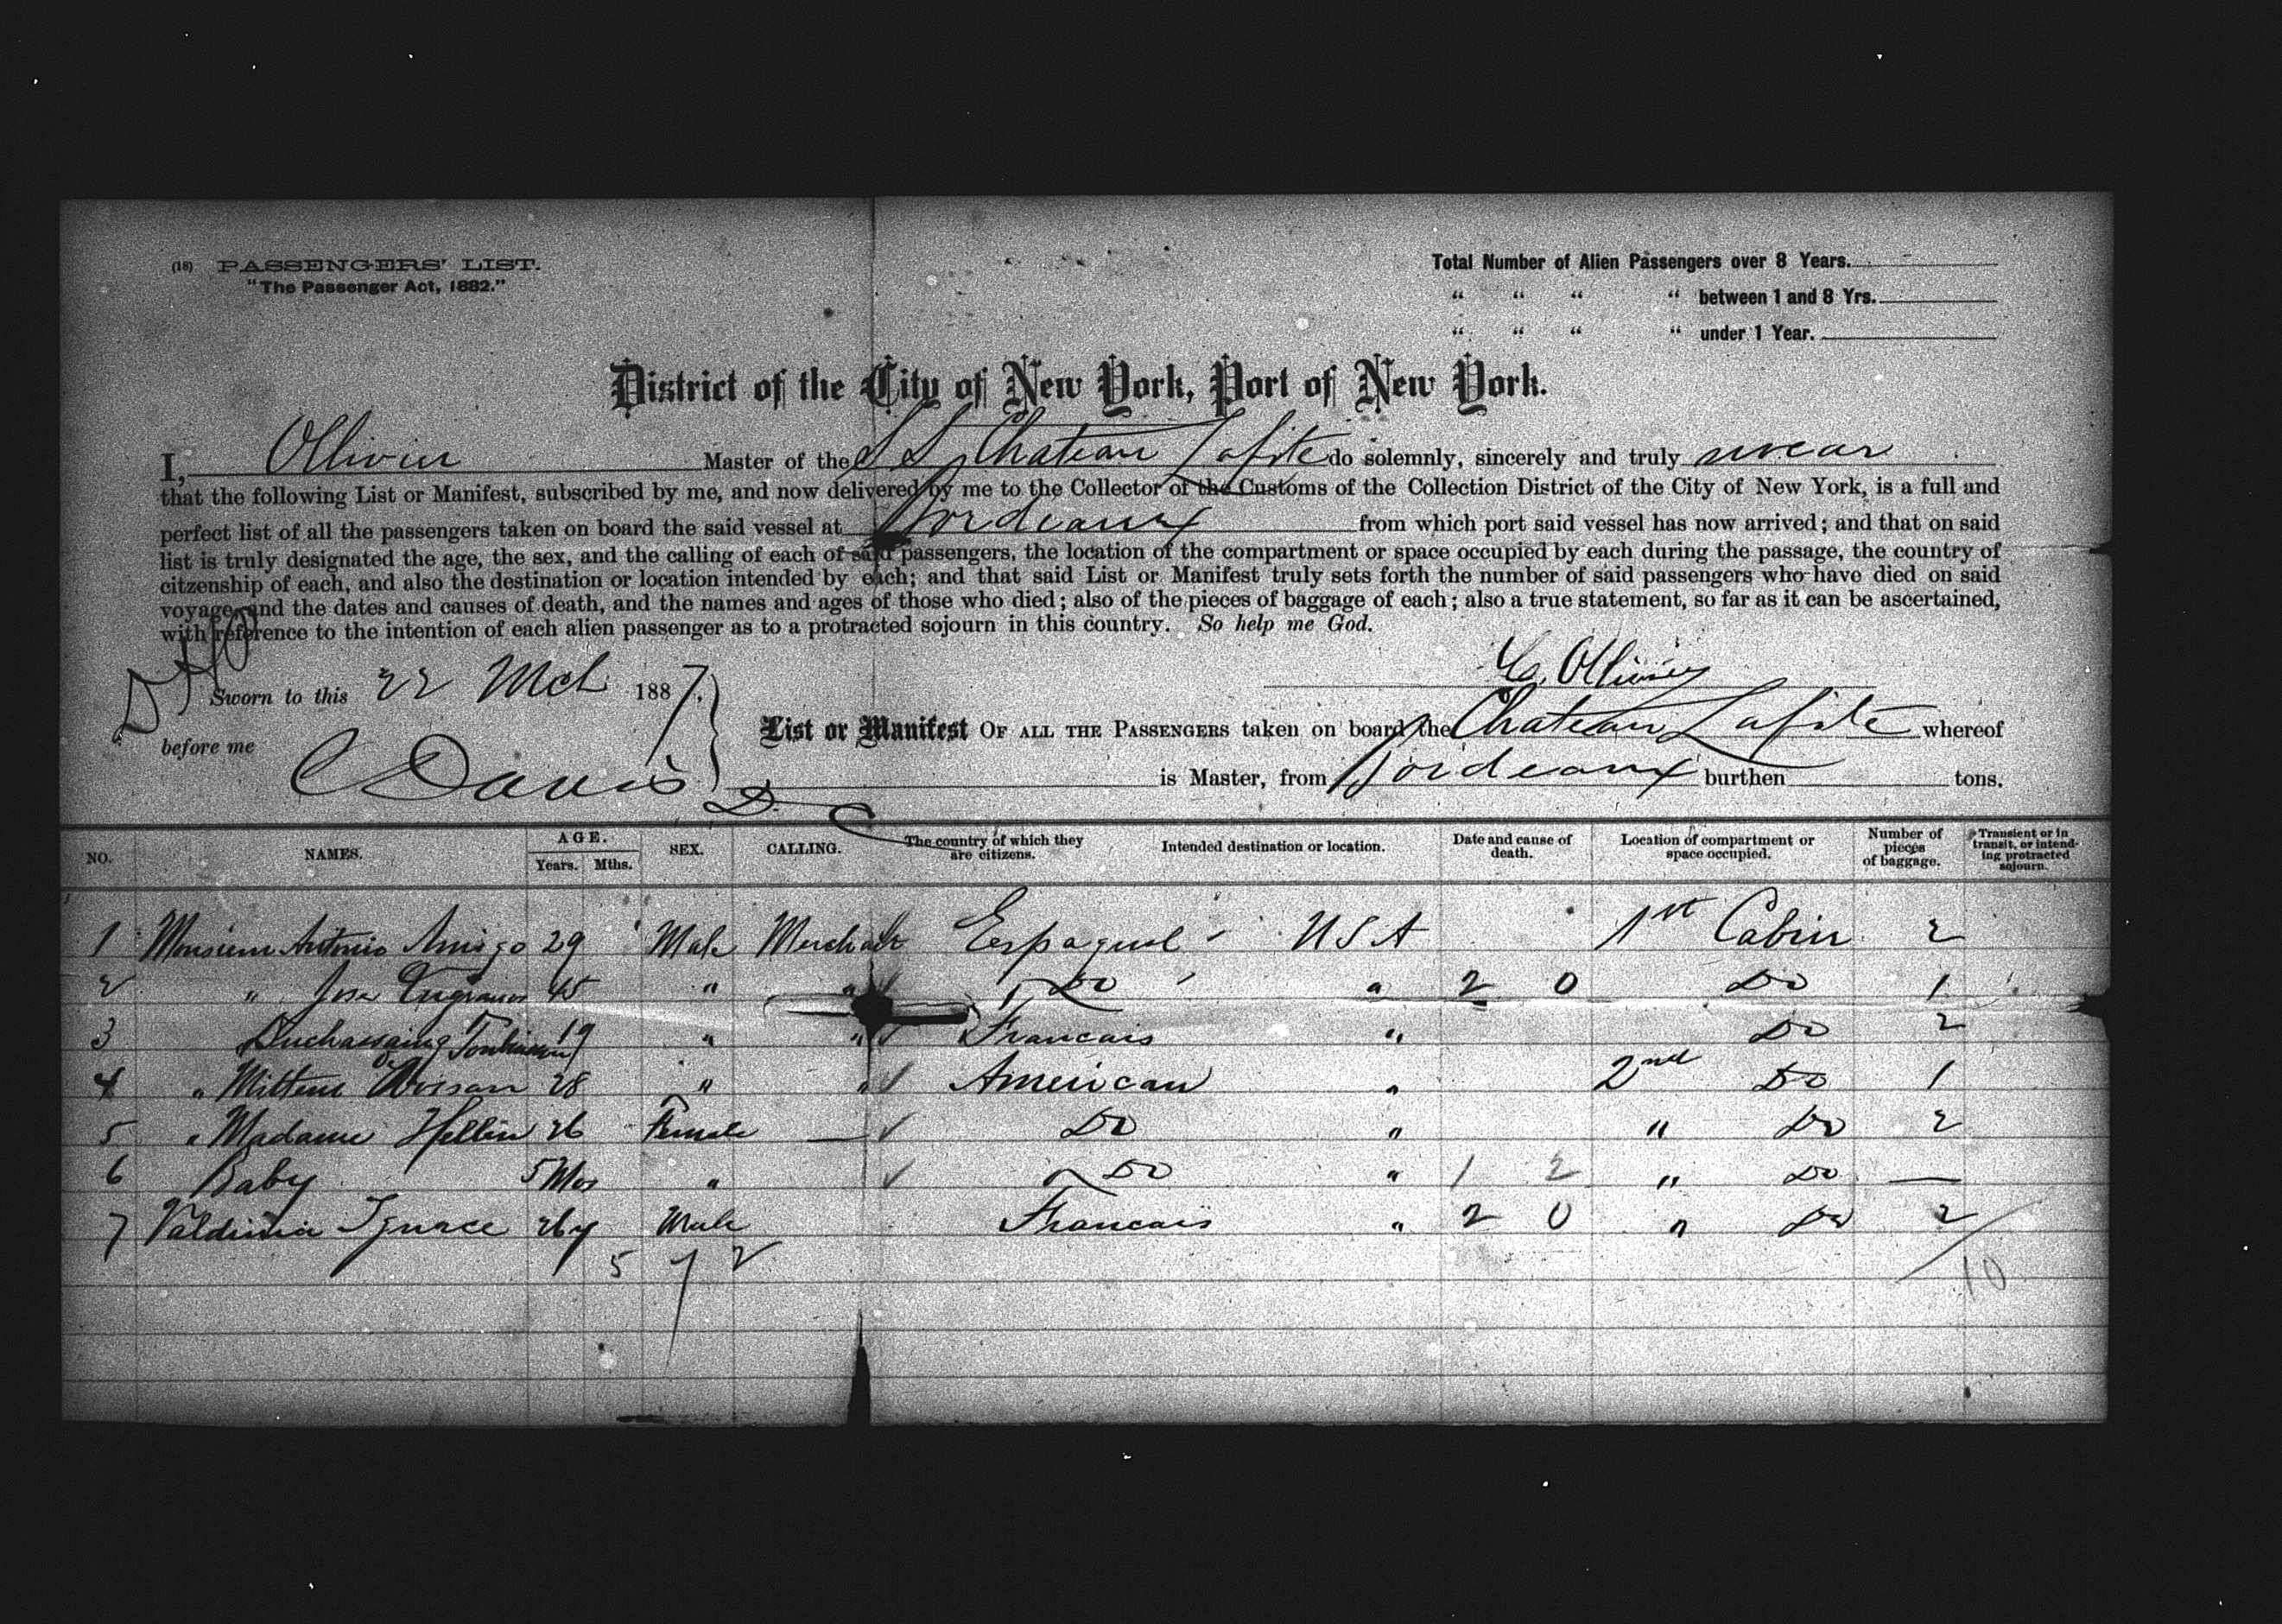 (18) PASSENGERS' LIST.
"The Passenger Act, 1882."
Total Number of Alien Passengers over 8 Years.
" " " " between 1 and 8 Yrs.
" " " " under 1 Year.
District of the City of New York, Port of New York.
I, Ollivier Master of the SS Chateau Lafite do solemnly, sincerely and truly swear
that the following List or Manifest, subscribed by me, and now delivered by me to the Collector of the Customs of the Collection District of the City of New York, is a full and
perfect list of all the passengers taken on board the said vessel at Bordeaux from which port said vessel has now arrived; and that on said
list is truly designated the age, the sex, and the calling of each of said passengers, the location of the compartment or space occupied by each during the passage, the country of
citzenship of each, and also the destination or location intended by each; and that said List or Manifest truly sets forth the number of said passengers who have died on said
voyage, and the dates and causes of death, and the names and ages of those who died; also of the pieces of baggage of each; also a true statement, so far as it can be ascertained,
with reference to the intention of each alien passenger as to a protracted sojourn in this country. So help me God.
Sworn to this 22 Mch 1887.
Ollivier
before me C Davis D. C
List or Manifest OF ALL THE PASSENGERS taken on board the Chateau Lafite whereof
is Master, from Bordeaux burthen tons.
NO. NAMES. AGE. Years. Mths. SEX. CALLING. The country of which they are citizens. Intended destination or location. Date and cause of death. Location of compartment or space occupied. Number of pieces of baggage. Transient or in transit, or intending protracted sojourn.
1 Monsieur Antonio Amigo 29 Male Merchant Espagnol USA 1st Cabin 2
2 " Jose 45 " " Do " 2 0 Do 1
3 Duchassaing 19 " " Francais " Do 2
4 " 28 " " American " 2nd Do 1
5 " Madame Hellin 26 Female — Do " " Do 2
6 Baby 5 Mos " Do " 1 2 " Do —
7 Ignace 26 Male Francais " 2 0 " Do 2
5 7 2 10